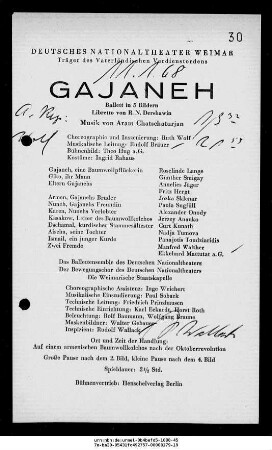 30
DEUTSCHES NATIONALTHEATER WEIMAR
Träger des Vaterländischen Verdienstordens
11.1.68
GAJANEH
Ballett in 5 Bildern
Libretto von R. N. Dershawin
Musik von Aram Chatschaturian
Choreographie und Inszenierung: Ruth Wolf
Musikalische Leitung: Rudolf Bräuer
Bühnenbild: Theo Hug a. G.
Kostüme: Ingrid Rahaus
Gajaneh, eine Baumwollpflückerin Roselinde Lange
Giko, ihr Mann Günther Smigay
Eltern Gajanehs Annelies Jäger
Fritz Hergt
Armen, Gajanehs Bruder
Nuneh, Gajanehs Freundin Paula Segfüll
Karen, Nunehs Verlobter Alexander
Kasakow, Leiter des Baumwollkolchos
Dschamal, kurdischer Stammesältester Curt Konrath
Aischa, seine Tochter Nadja Tumova
Ismail, ein junger Kurde Panajotis
Zwei Freunde Manfred Walther
Ekkehard
Das Ballettensemble des Deutschen Nationaltheaters
Der Bewegungschor des Deutschen Nationaltheaters
Die Weimarische Staatskapelle
Choreographische Assistenz: Inge Weichert
Musikalische Einstudierung: Paul Soback
Technische Leitung: Friedrich Christoph
Technische Einrichtung: Karl Eckardt, Horst Roth
Beleuchtung: Rolf Baumann, Wolfgang Braune
Maskenbildner: Walter
Inspizient: Rudolf Wallack
Ort und Zeit der Handlung:
Auf einem armenischen Baumwollkolchos nach der Oktoberrevolution
Große Pause nach dem 2. Bild, kleine Pause nach dem 4. Bild
Spieldauer: 2½ Std.
Bühnenvertrieb: Henschelverlag Berlin